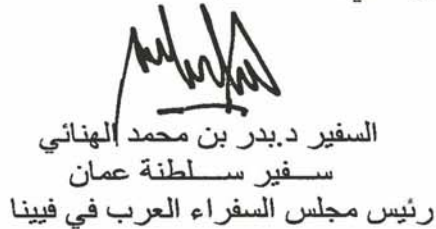 السفير د.بدر بن محمد الهنائي
سفير سلطنة عمان
رئيس مجلس السفراء العرب في فيينا